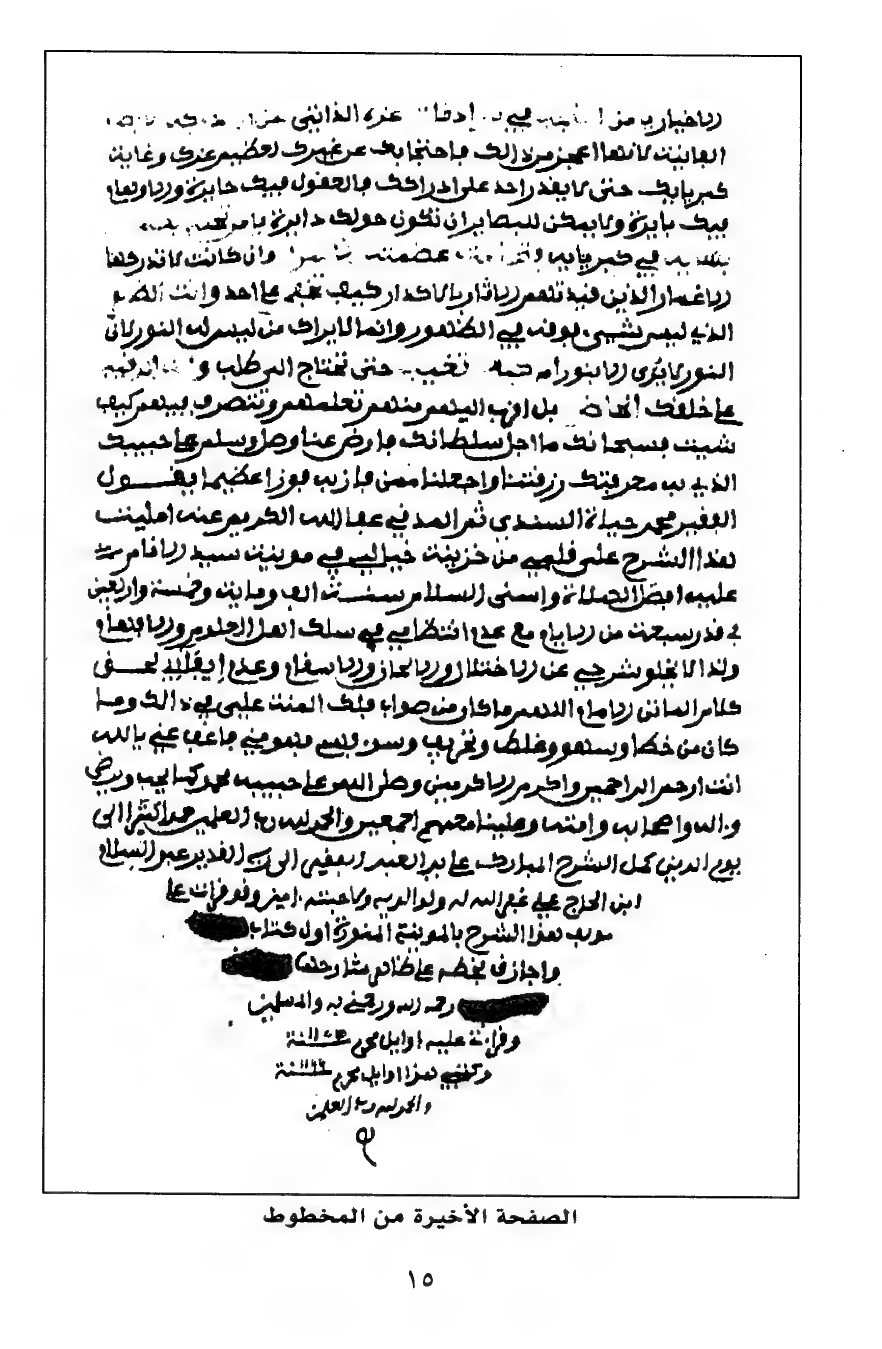 الاخيار من
الفانية لانها اعجز من ذالك فاحتجابك عن غيرك لعظيم عزك وغاية
كبريايك حتى لا يقدر احد على ادراكك فالعقول فيك حايرة والاوهام
فيك بايرة ولا يمكن للبصاير ان تكون حولك دايرة يا من
في كبريايه عظمته وان كانت لا تدركها
الاغمار الذين قيدتهم الاثار بالاكدار كيف تخفى على احد وانت
الذي ليس شيي فوقه في الظهور وانما لا يراك من ليس له النور لان
النور لا يرى الا بنور ام حتى تحتاج الى طلب و
على خلقك بل اقرب اليهم منهم تعلمهم وتتصرف فيهم كيف
شيت فسبحانك ما اجل سلطانك فارض عنا وصل وسلم على حبيبك
الذي به معرفتك رزقتنا واجعلنا ممن فاز به فوزا عظيما يقول
الفقير محمد حياة السندي ثم المدني عفا الله الكريم عنه امليت
هذا الشرح على قلمي من خزينة خيالي في مدينة سيد الانام
عليه افضل الصلاة واسنى السلام سنة الف وماية وخمسة واربعين
في قدر سبعة من الايام مع عدم انتظامي في سلك اهل العلوم والافهام
ولذا لا يخلو شرحي عن الاختلال والالحاز والاسقام وعدم ايفايه لحق
كلام الماتن الامام اللهم ما كان من صواب فلك المنة علي في ذالك وما
كان من خطا وسهو وغلط وتحريف وسوء فهمي فاعف عني يا الله
انت ارحم الراحمين واكرم الاكرمين وصلى الله على حبيبه محمد كما يحب ويرضى
واله واصحابه وامته وعلينا معهم اجمعين والحمد لله رب العلمين حمدا كثيرا الى
يوم الدين كمل الشرح المبارك على يد العبد الفقير الى ربه القدير عبد السلام
ابن الحاج علي غفر الله له ولوالديه ولاحبته امين وقد قرات على
مولف هذا الشرح بالمدينة المنورة اول كتاب
واجازني بخطه على
رحمه الله ورحمني به والمسلمين
وقراءة عليه اوايل محرم سنة
وكتبي هذا اوايل محرم سنة
والحمد لله رب العلمين
الصفحة الأخيرة من المخطوط
١٥